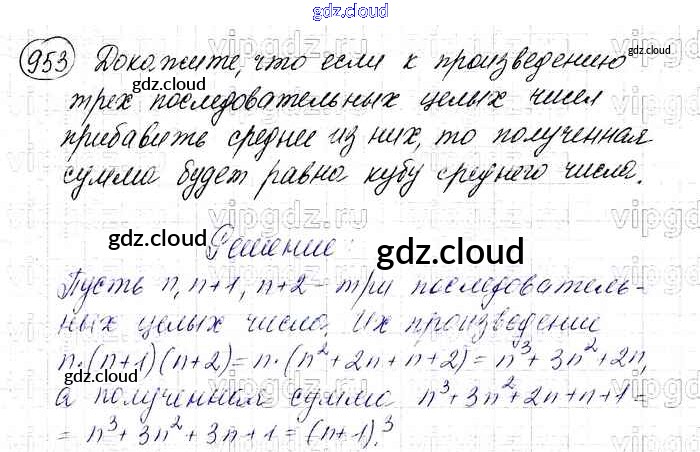 gdz.cloud
953 Докажите, что если к произведению
gdz.cloud
трех последовательных целых чисел
gdz.cloud
прибавить среднее из них, то полученная
сумма будет равна кубу среднего числа.
gdz.cloud
Решение:
gdz.cloud
Пусть n, n+1, n+2 – три последователь-
ных целых числа. Их произведение
n·(n+1)(n+2)=n·(n²+2n+n+2)=n³+3n²+2n,
gdz.cloud
а полученная сумма n³+3n²+2n+n+1=
gdz.cloud
= n³+3n²+3n+1=(n+1)³.